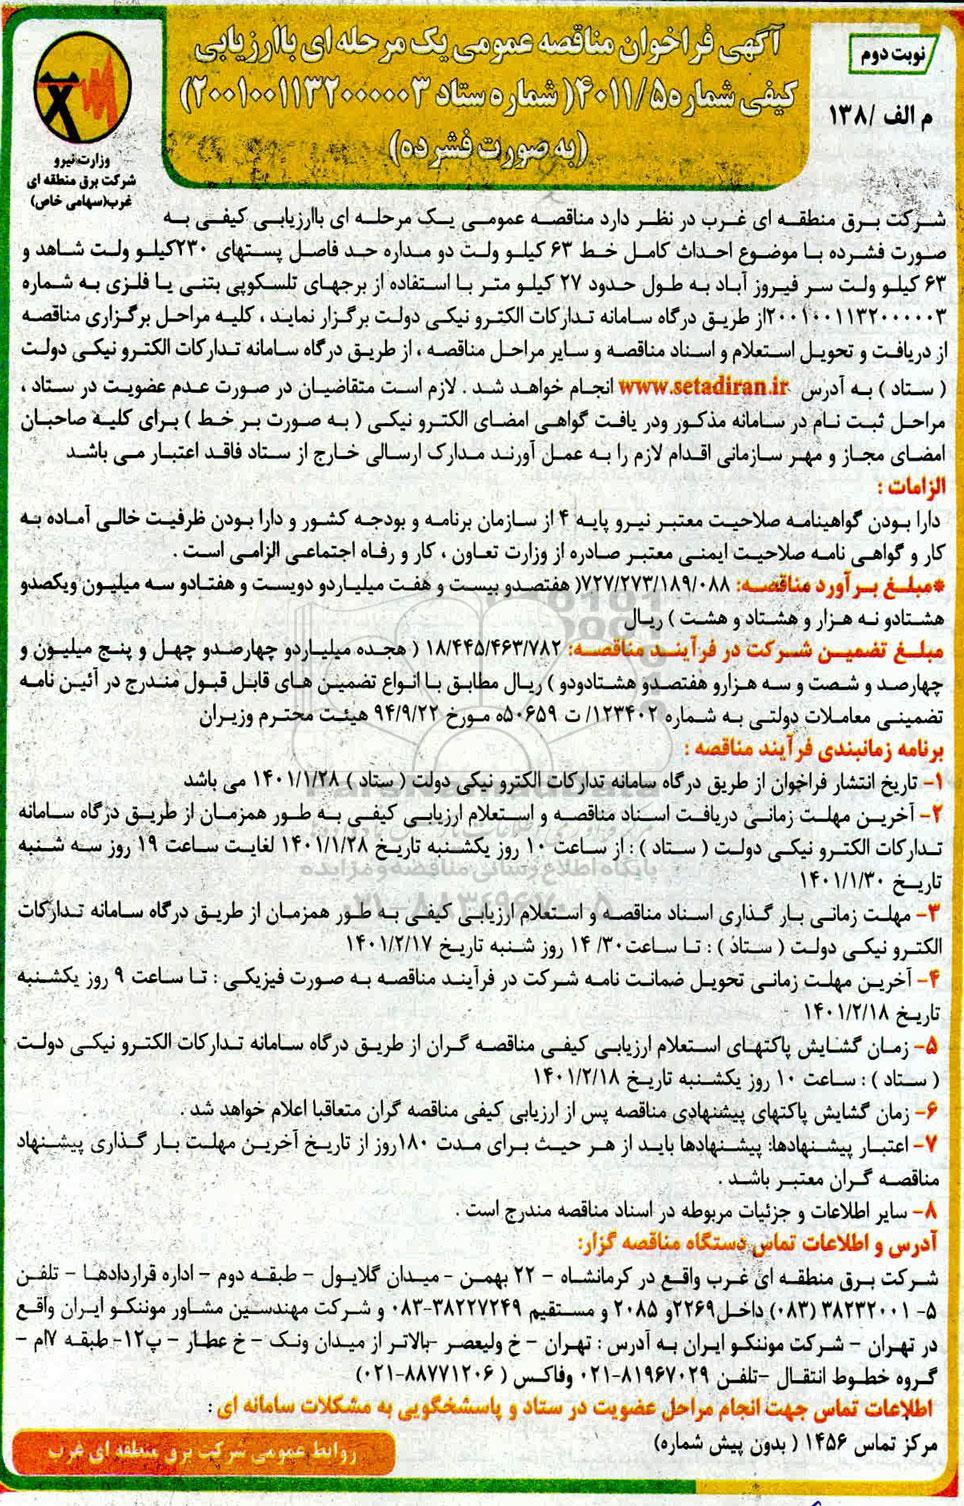 نوبت دوم
م الف /۱۳۸
آگهی فراخوان مناقصه عمومی یک مرحله ای باارزیابی
کیفی شماره۴۰۱۱/۵( شماره ستاد ۲۰۰۱۰۰۱۱۳۲۰۰۰۰۰۳)
(به صورت فشرده)
وزارت نیرو
شرکت برق منطقه ای
غرب(سهامی خاص)
شرکت برق منطقه ای غرب در نظر دارد مناقصه عمومی یک مرحله ای باارزیابی کیفی به
صورت فشرده با موضوع احداث کامل خط ۶۳ کیلو ولت دو مداره حد فاصل پستهای ۲۳۰کیلو ولت شاهد و
۶۳ کیلو ولت سر فیروز آباد به طول حدود ۲۷ کیلو متر با استفاده از برجهای تلسکوپی بتنی یا فلزی به شماره
۲۰۰۱۰۰۱۱۳۲۰۰۰۰۰۳از طریق درگاه سامانه تدارکات الکترو نیکی دولت برگزار نمایند ، کلیه مراحل برگزاری مناقصه
از دریافت و تحویل استعلام و اسناد مناقصه و سایر مراحل مناقصه ، از طریق درگاه سامانه تدارکات الکترو نیکی دولت
( ستاد ) به آدرس www.setadiran.ir انجام خواهد شد . لازم است متقاضیان در صورت عدم عضویت در ستاد ،
مراحل ثبت نام در سامانه مذکور ودر یافت گواهی امضای الکترو نیکی ( به صورت بر خط ) برای کلیه صاحبان
امضای مجاز و مهر سازمانی اقدام لازم را به عمل آورند مدارک ارسالی خارج از ستاد فاقد اعتبار می باشد
الزامات :
دارا بودن گواهینامه صلاحیت معتبر نیرو پایه ۴ از سازمان برنامه و بودجه کشور و دارا بودن ظرفیت خالی آماده به
کار و گواهی نامه صلاحیت ایمنی معتبر صادره از وزارت تعاون ، کار و رفاه اجتماعی الزامی است .
*مبلغ بر آورد مناقصه: ۷۲۷/۲۷۳/۱۸۹/۰۸۸( هفتصدو بیست و هفت میلیاردو دویست و هفتادو سه میلیون ویکصدو
هشتادو نه هزار و هشتاد و هشت ) ریال
مبلغ تضمین شرکت در فرآیند مناقصه: ۱۸/۴۴۵/۴۶۳/۷۸۲ ( هجده میلیاردو چهارصدو چهل و پنج میلیون و
چهارصد و شصت و سه هزارو هفتصدو هشتادودو ) ریال مطابق با انواع تضمین های قابل قبول مندرج در آئین نامه
تضمینی معاملات دولتی به شماره ۱۲۳۴۰۲/ ت ۵۰۶۵۹ه مورخ ۹۴/۹/۲۲ هیئت محترم وزیران
برنامه زمانبندی فرآیند مناقصه :
۱- تاریخ انتشار فراخوان از طریق درگاه سامانه تدارکات الکترو نیکی دولت ( ستاد ) ۱۴۰۱/۱/۲۸ می باشد
۲- آخرین مهلت زمانی دریافت اسناد مناقصه و استعلام ارزیابی کیفی به طور همزمان از طریق درگاه سامانه
تدارکات الکترو نیکی دولت ( ستاد ) : از ساعت ۱۰ روز یکشنبه تاریخ ۱۴۰۱/۱/۲۸ لغایت ساعت ۱۹ روز سه شنبه
تاریخ ۱۴۰۱/۱/۳۰
۳- مهلت زمانی بار گذاری اسناد مناقصه و استعلام ارزیابی کیفی به طور همزمان از طریق درگاه سامانه تدارکات
الکترو نیکی دولت ( ستاد ) : تا ساعت۳۰/ ۱۴ روز شنبه تاریخ ۱۴۰۱/۲/۱۷
۴- آخرین مهلت زمانی تحویل ضمانت نامه شرکت در فرآیند مناقصه به صورت فیزیکی : تا ساعت ۹ روز یکشنبه
تاریخ ۱۴۰۱/۲/۱۸
۵- زمان گشایش پاکتهای استعلام ارزیابی کیفی مناقصه گران از طریق درگاه سامانه تدارکات الکترو نیکی دولت
( ستاد ) : ساعت ۱۰ روز یکشنبه تاریخ ۱۴۰۱/۲/۱۸
۶- زمان گشایش پاکتهای پیشنهادی مناقصه پس از ارزیابی کیفی مناقصه گران متعاقبا اعلام خواهد شد .
۷- اعتبار پیشنهادها: پیشنهادها باید از هر حیث برای مدت ۱۸۰روز از تاریخ آخرین مهلت بار گذاری پیشنهاد
مناقصه گران معتبر باشد .
۸- سایر اطلاعات و جزئیات مربوطه در اسناد مناقصه مندرج است .
آدرس و اطلاعات تماس دستگاه مناقصه گزار:
شرکت برق منطقه ای غرب واقع در کرمانشاه - ۲۲ بهمن - میدان گلایول - طبقه دوم - اداره قراردادها - تلفن
۵- ۳۸۲۳۲۰۰۱ (۰۸۳) داخل۲۲۶۹و ۲۰۸۵ و مستقیم ۳۸۲۲۷۲۴۹-۰۸۳ و شرکت مهندسین مشاور موننکو ایران واقع
در تهران - شرکت موننکو ایران به آدرس : تهران - خ ولیعصر -بالاتر از میدان ونک - خ عطار - پ۱۲- طبقه ۷ام -
گروه خطوط انتقال -تلفن ۸۱۹۶۷۰۲۹-۰۲۱ وفاکس ( ۸۸۷۷۱۲۰۶-۰۲۱)
اطلاعات تماس جهت انجام مراحل عضویت در ستاد و پاسشخگویی به مشکلات سامانه ای :
مرکز تماس ۱۴۵۶ ( بدون پیش شماره)
روابط عمومی شرکت برق منطقه ای غرب